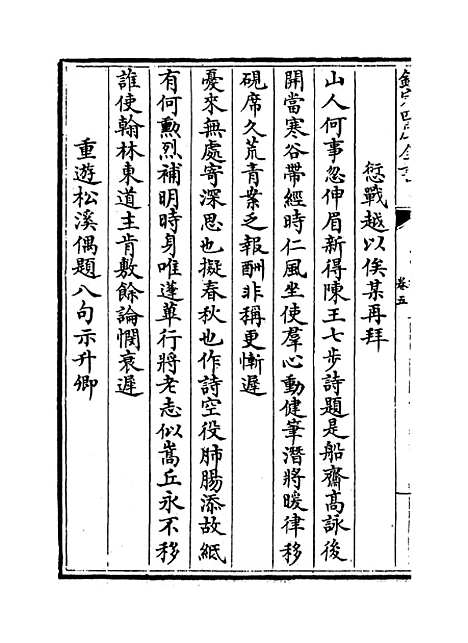 愆戰越以俟某再拜
山人何事忽伸眉新得陳王七步詩題是船齋高詠後
開當寒谷帶經時仁風坐使羣心動健筆潛將暖律移
硯席久荒青案乏報酬非稱更慚遲
憂來無處寄深思也擬春秋也作詩空役肺腸添故紙
有何勲烈補明時身唯蓬蓽行將老志似嵩丘永不移
誰使翰林東道主肯敷餘論憫衰遲
重遊松溪偶題八句示升卿
卷五